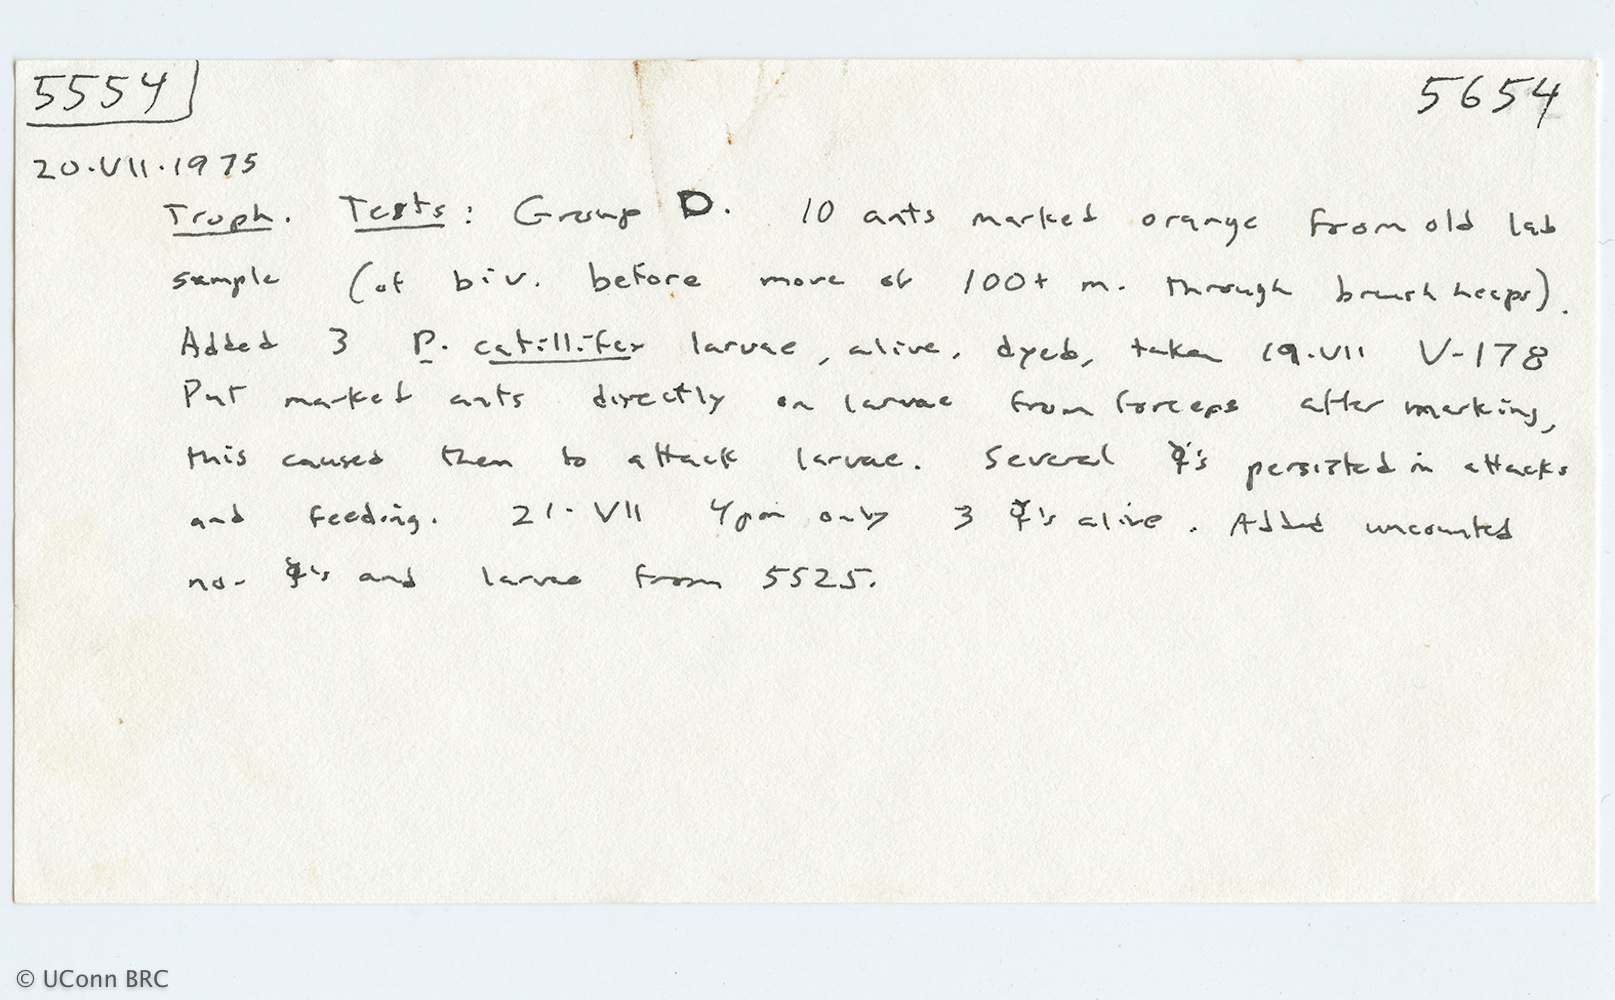 5554 5654
20.VII.1975
Troph. Tests: Group D. 10 ants marked orange from old lab
sample (of biv. before move of 100+ m. through brush heaps).
Added 3 P. catillifex larvae, alive, dyed, taken 19.VII V-178
Put marked ants directly on larvae from forceps after marking,
this caused them to attack larvae. Several ☿'s persisted in attacks
and feeding. 21.VII 4pm only 3 ☿'s alive. Added uncounted
no. ☿'s and larvae from 5525.
© UConn BRC